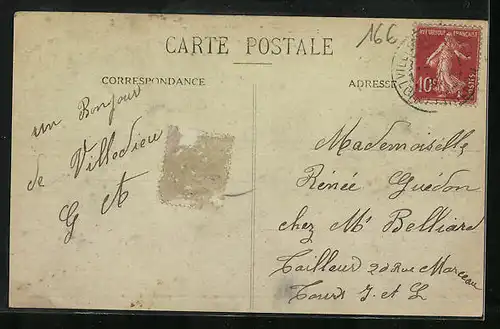 166
CARTE POSTALE
CORRESPONDANCE
ADRESSE
REPUBLIQUE FRANÇAISE
10c
POSTES
un Bonjour
de Villedieu
G A
Mademoiselle
Rénée Guédon
chez Mr Belliard
Tailleur 20 Rue Marceau
Tours I. et L